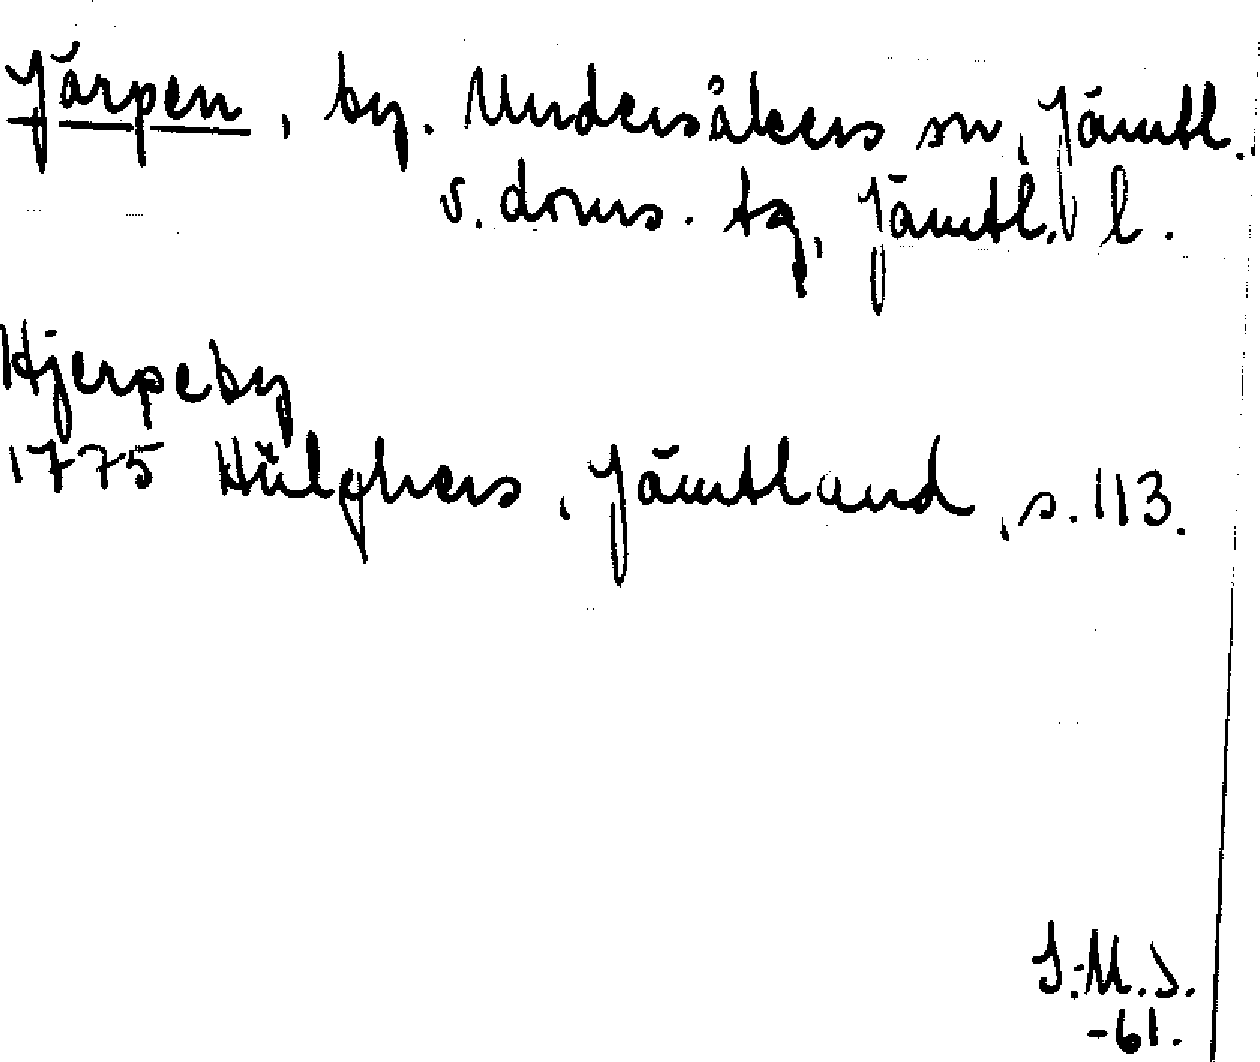 Järpen, by. Undersåkers sn, Jämtl.
v. doms. tg, Jämtl. l.
Hjerpeby
1775 Hülphers, Jämtland, s. 113.
I.-M.S.
-61.